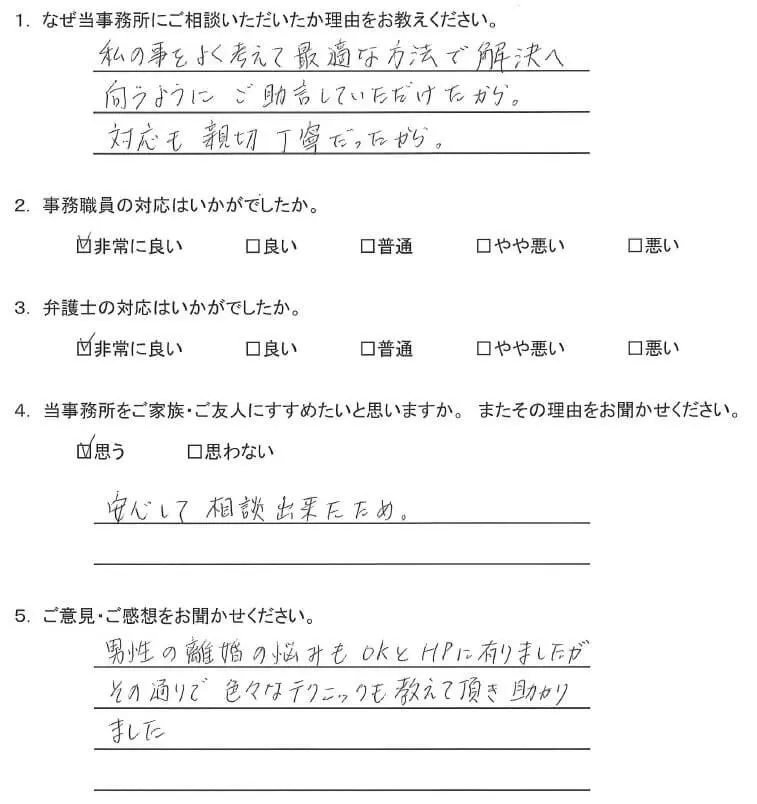 1. なぜ当事務所にご相談いただいたか理由をお教えください。
私の事をよく考えて最適な方法で解決へ
向うように ご助言していただけたから。
対応も 親切 丁寧だったから。
2. 事務職員の対応はいかがでしたか。
☑非常に良い □良い □普通 □やや悪い □悪い
3. 弁護士の対応はいかがでしたか。
☑非常に良い □良い □普通 □やや悪い □悪い
4. 当事務所をご家族・ご友人にすすめたいと思いますか。 またその理由をお聞かせください。
☑思う □思わない
安心して 相談出来たため。
5. ご意見・ご感想をお聞かせください。
男性の離婚の悩みも OKと HPに有りましたが
その通りで 色々なテクニックも教えて頂き 助かり
ました